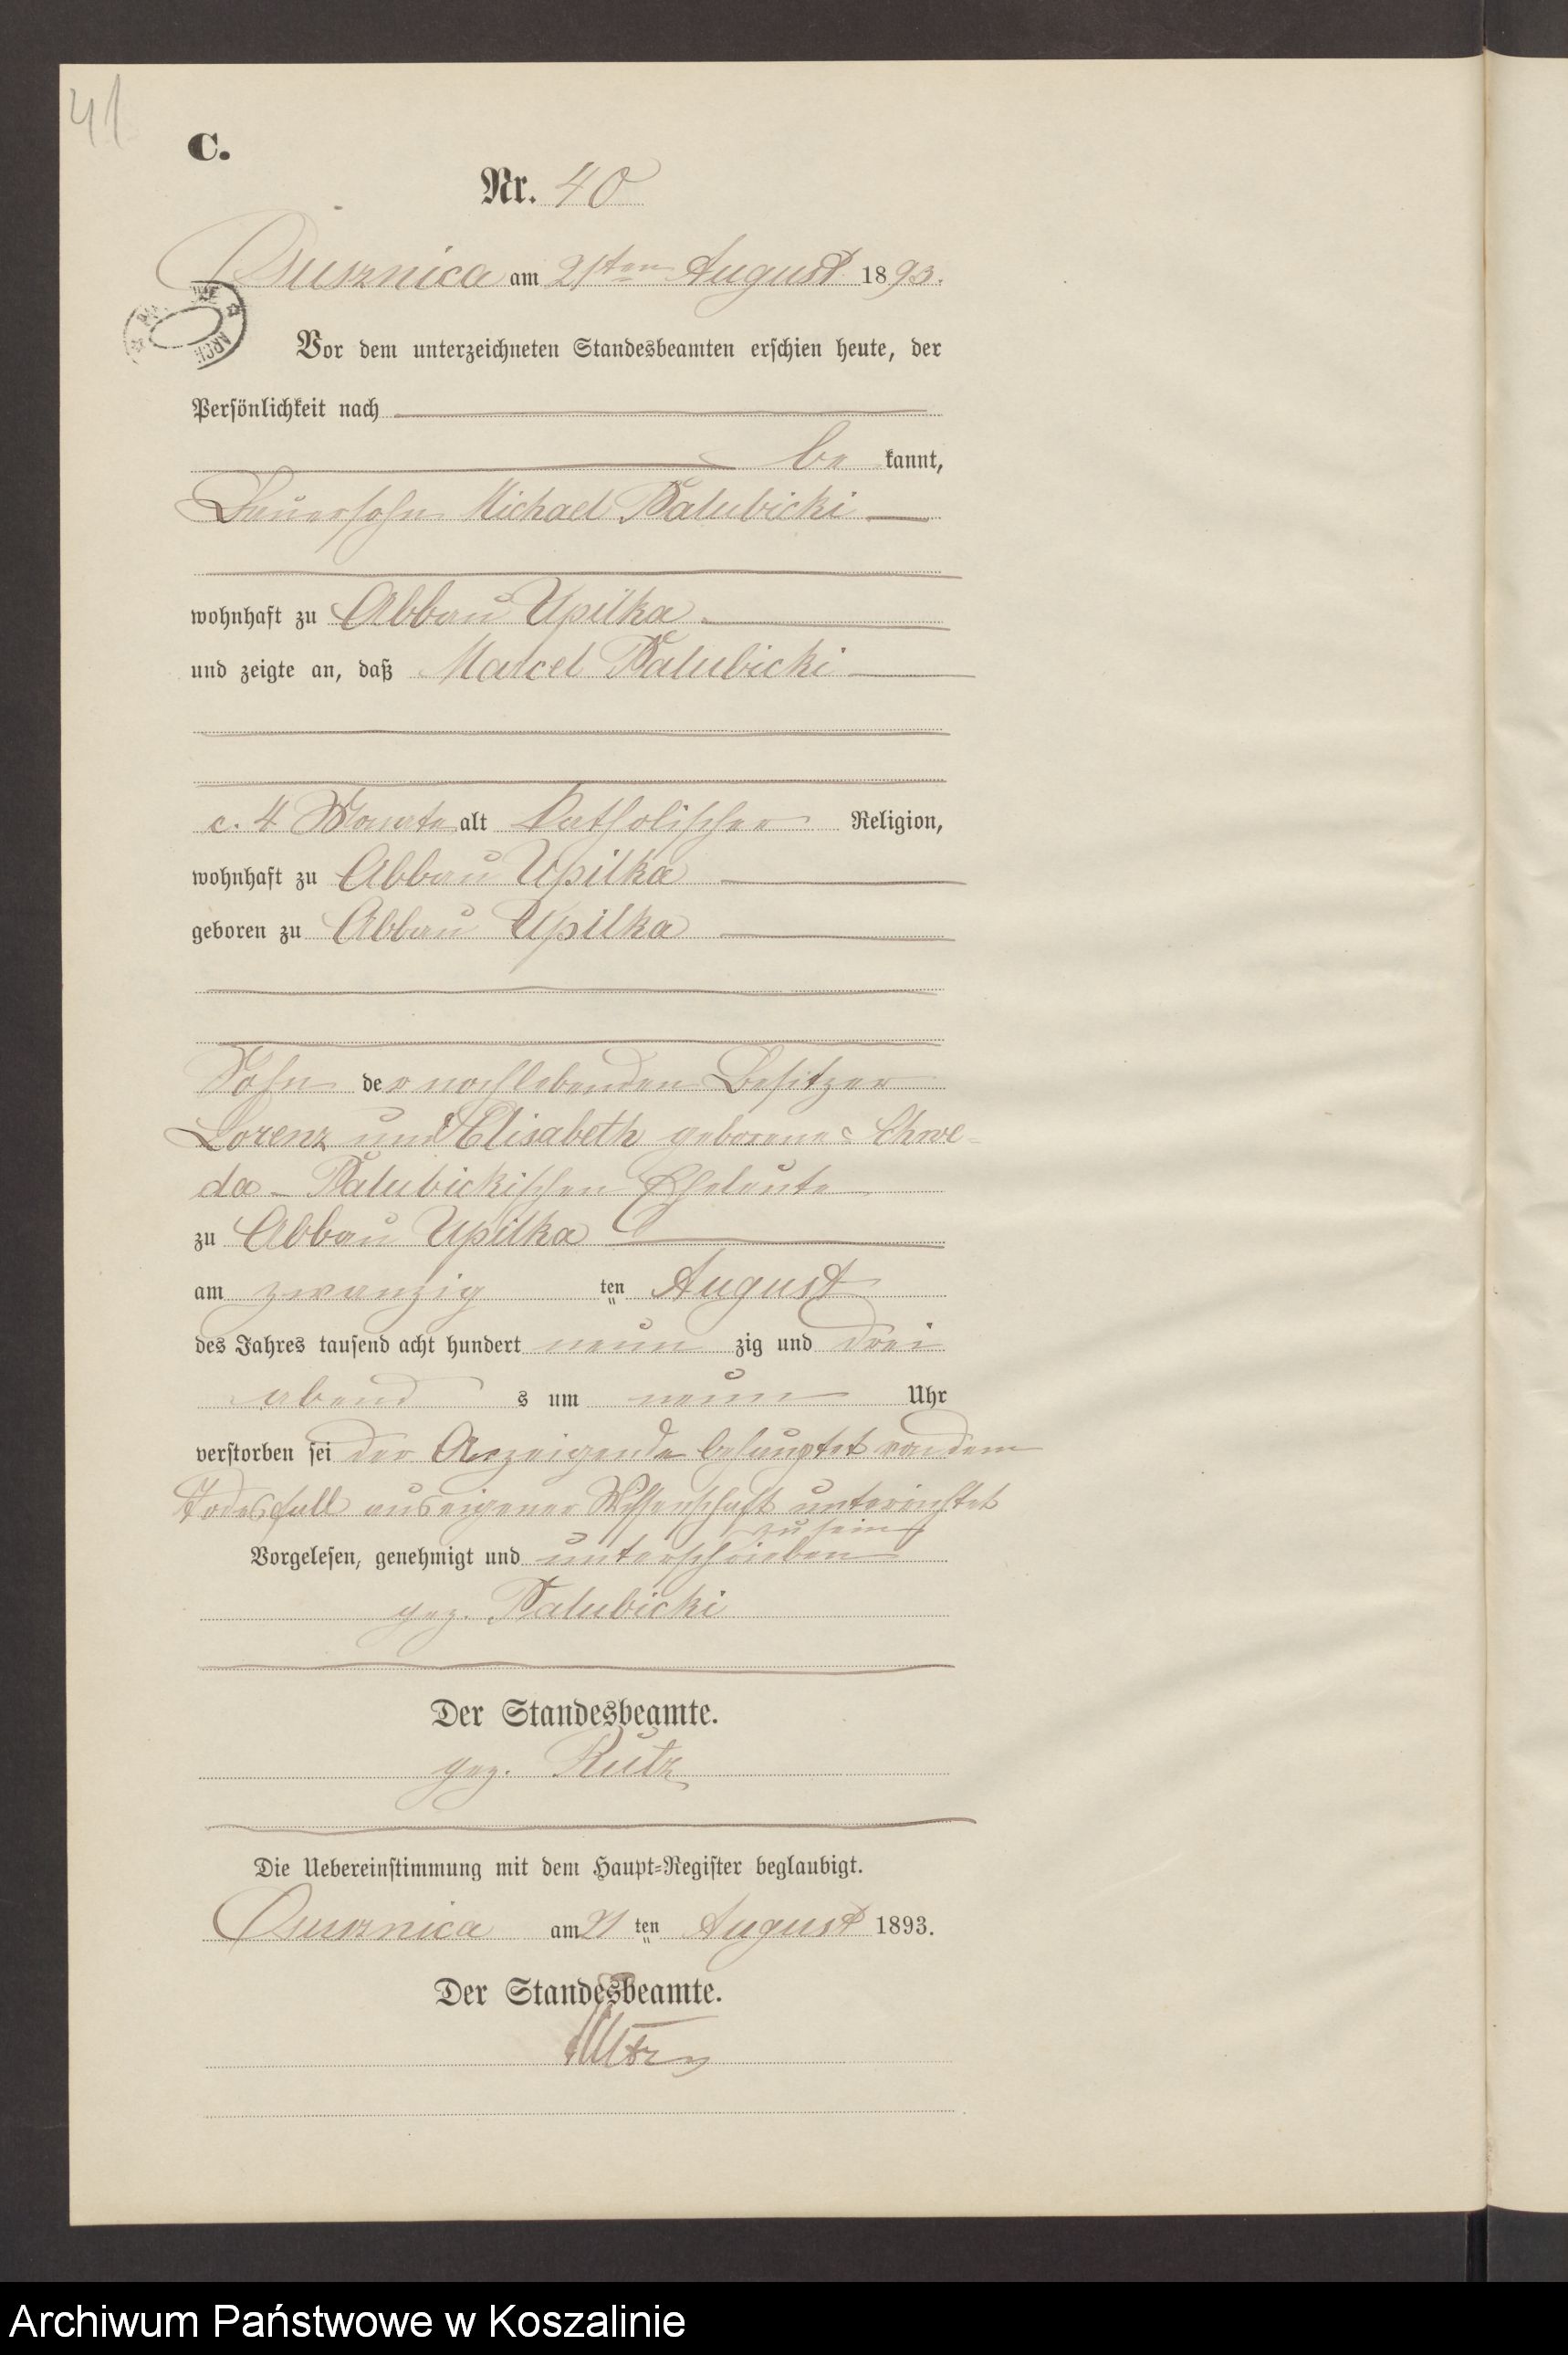 41
C.
Nr. 40
Ossusznica am 21ten August 1893.
Vor dem unterzeichneten Standesbeamten erschien heute, der
Persönlichkeit nach
be kannt,
Bauersohn Michael Palubicki
wohnhaft zu Abbau Upilka
und zeigte an, daß Marcel Palubicki
c. 4 Monate alt katholischer Religion,
wohnhaft zu Abbau Upilka
geboren zu Abbau Upilka
Sohn der noch lebenden Besitzer
Lorenz und Elisabeth geborene Chwe-
da - Palubickischen Eheleute
zu Abbau Upilka
am zwanzig ten August
des Jahres tausend acht hundert neun zig und drei
abend s um neun Uhr
verstorben sei der Anzeigende behauptet von dem
Todesfall aus eigener Wissenschaft unterrichtet
zu sein
Vorgelesen, genehmigt und unterschrieben
gez. Palubicki
Der Standesbeamte.
gez. Rutz
Die Uebereinstimmung mit dem Haupt-Register beglaubigt.
Ossusznica am 21 ten August 1893.
Der Standesbeamte.
Rutz
Archiwum Państwowe w Koszalinie